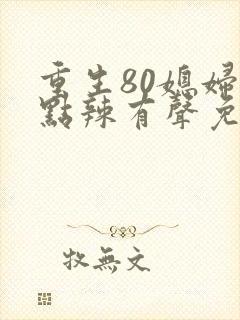 重生80媳婦
點辣有聲免
牧無文